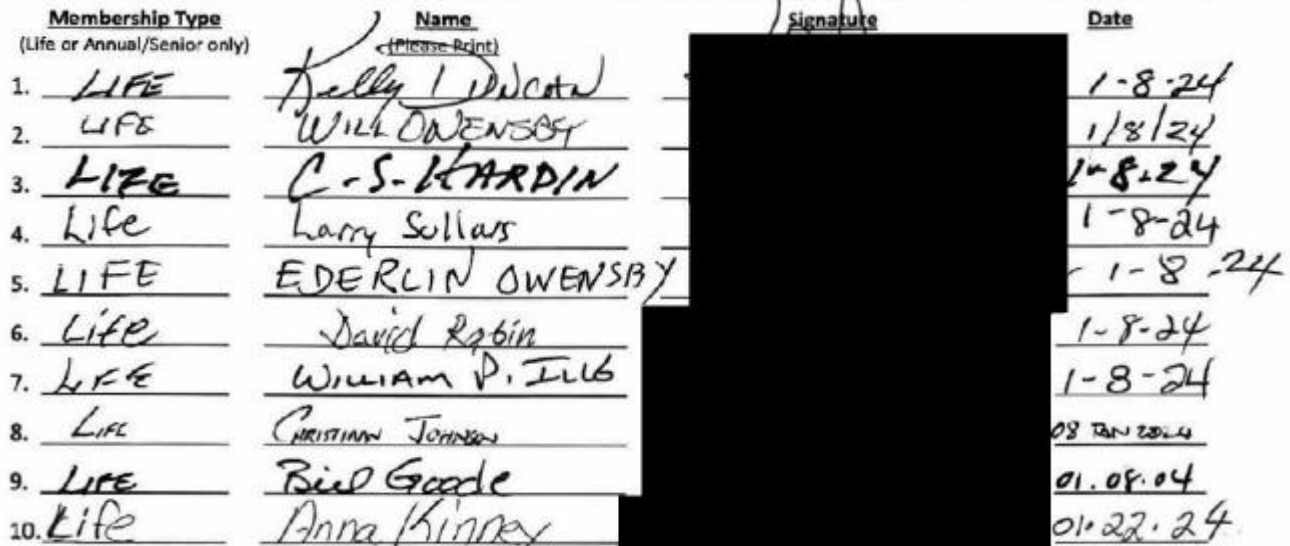 Membership Type Name Signature Date
(Life or Annual/Senior only) (Please Print)
1. LIFE Kelly D DUNCAN 1-8-24
2. LIFE WILL OWENSBY 1/8/24
3. LIFE C-S-HARDIN 1-8-24
4. Life Larry Sullars 1-8-24
5. LIFE EDERLIN OWENSBY 1-8-24
6. Life David Robin 1-8-24
7. LIFE WILLIAM P. ILLG 1-8-24
8. LIFE CHRISTIAAN JOHNSON 08 JAN 2024
9. LIFE Bill Goode 01.08.04
10. Life Anna Kinney 01.22.24